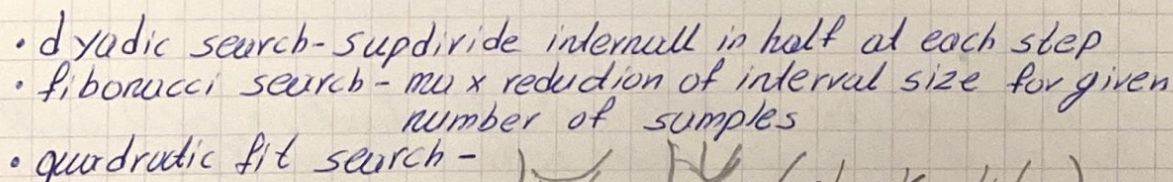 • dyadic search - supdivide internall in half at each step
• fibonacci search - max reduction of interval size for given
number of samples
• quadratic fit search -